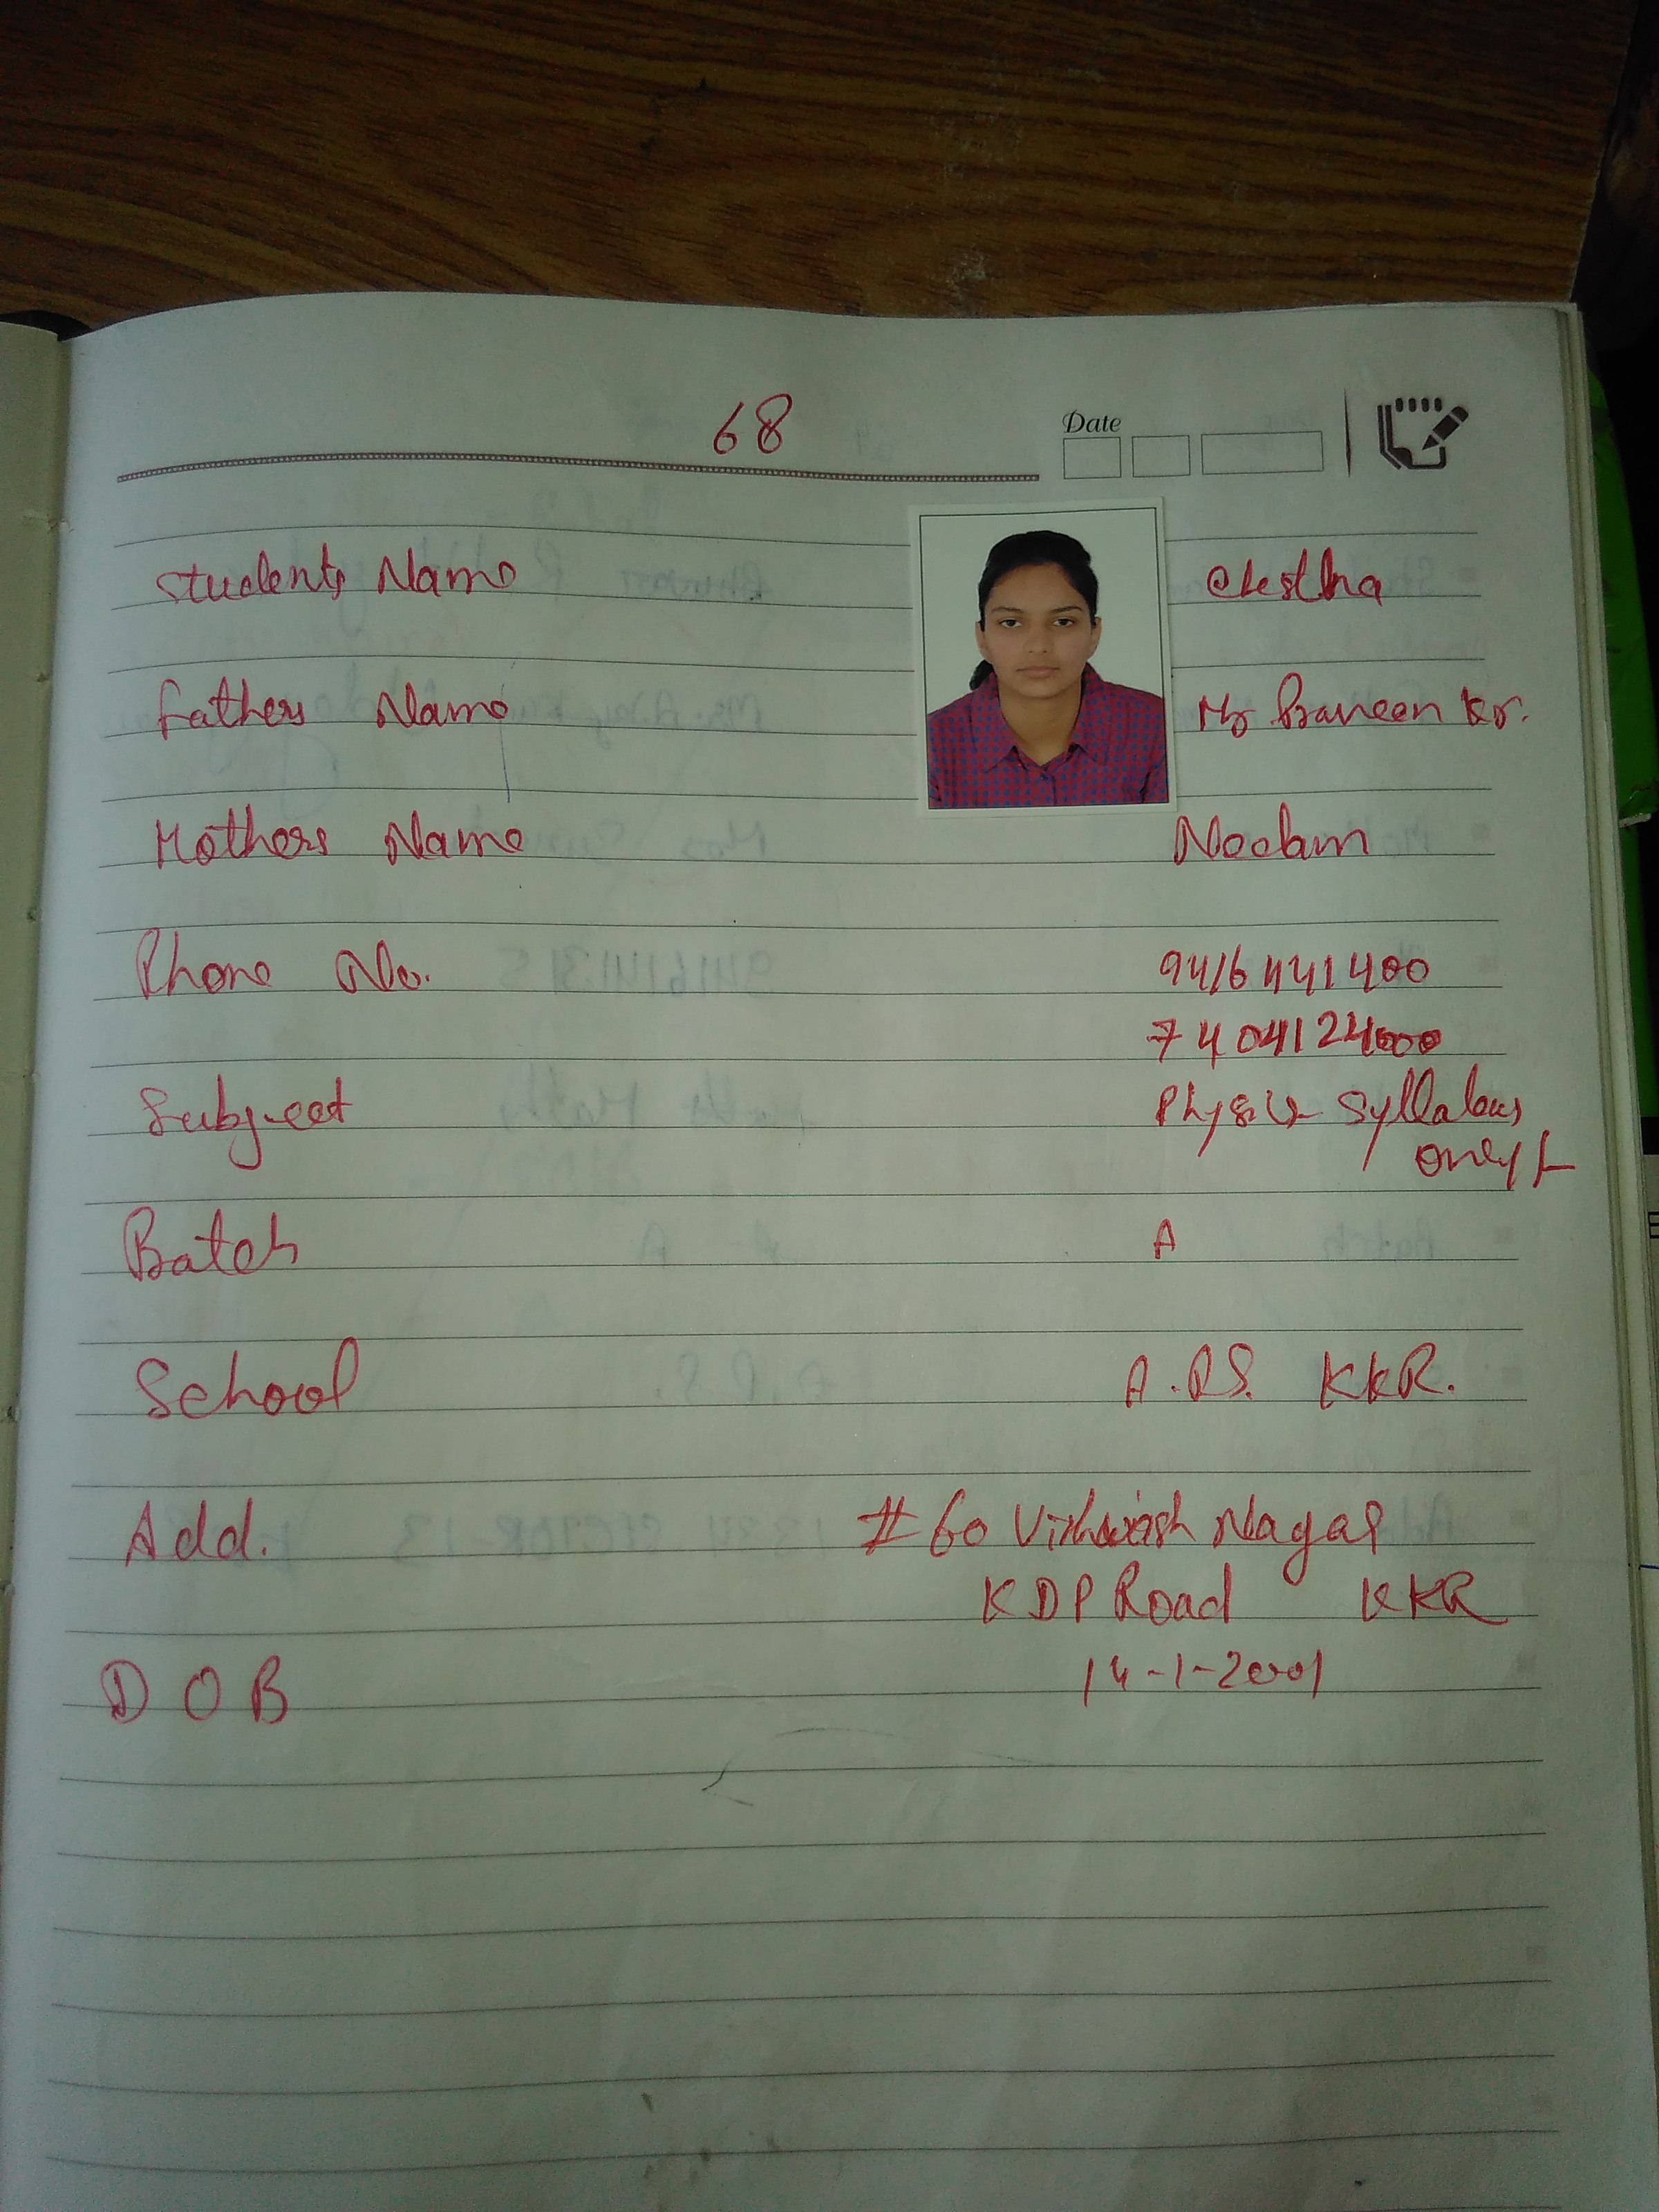 68
Date
Students Name
Fathers Name Mr Praveen Kr.
Mothers Name Neelam
Phone No.
7404124000
Subject Syllabus
only
Batch A
School A.P.S. KKR.
Add. #60 Nagar
KDP Road KKR
DOB 14-1-2001